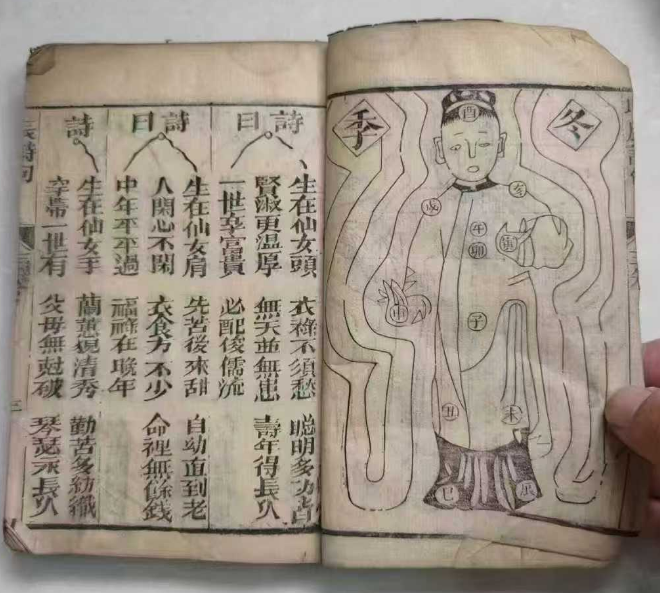 冬季
酉
亥
戌
午
卯
申
子
丑
未
巳
詩曰
生在仙女頭 衣祿不須愁 聰明多功
賢淑更溫厚 無天並無患 壽年得長久
一世享富貴 必配俊儒流
詩曰
生在仙女肩 先苦後來甜 自幼直到老
人閑心不閑 衣食方不少 命裡無餘錢
中年平平過 福祿在晚年
詩
生在仙女手 蘭蕙現清秀 勤苦多紡織
一世有 父母無尅破 琴瑟永長久
三